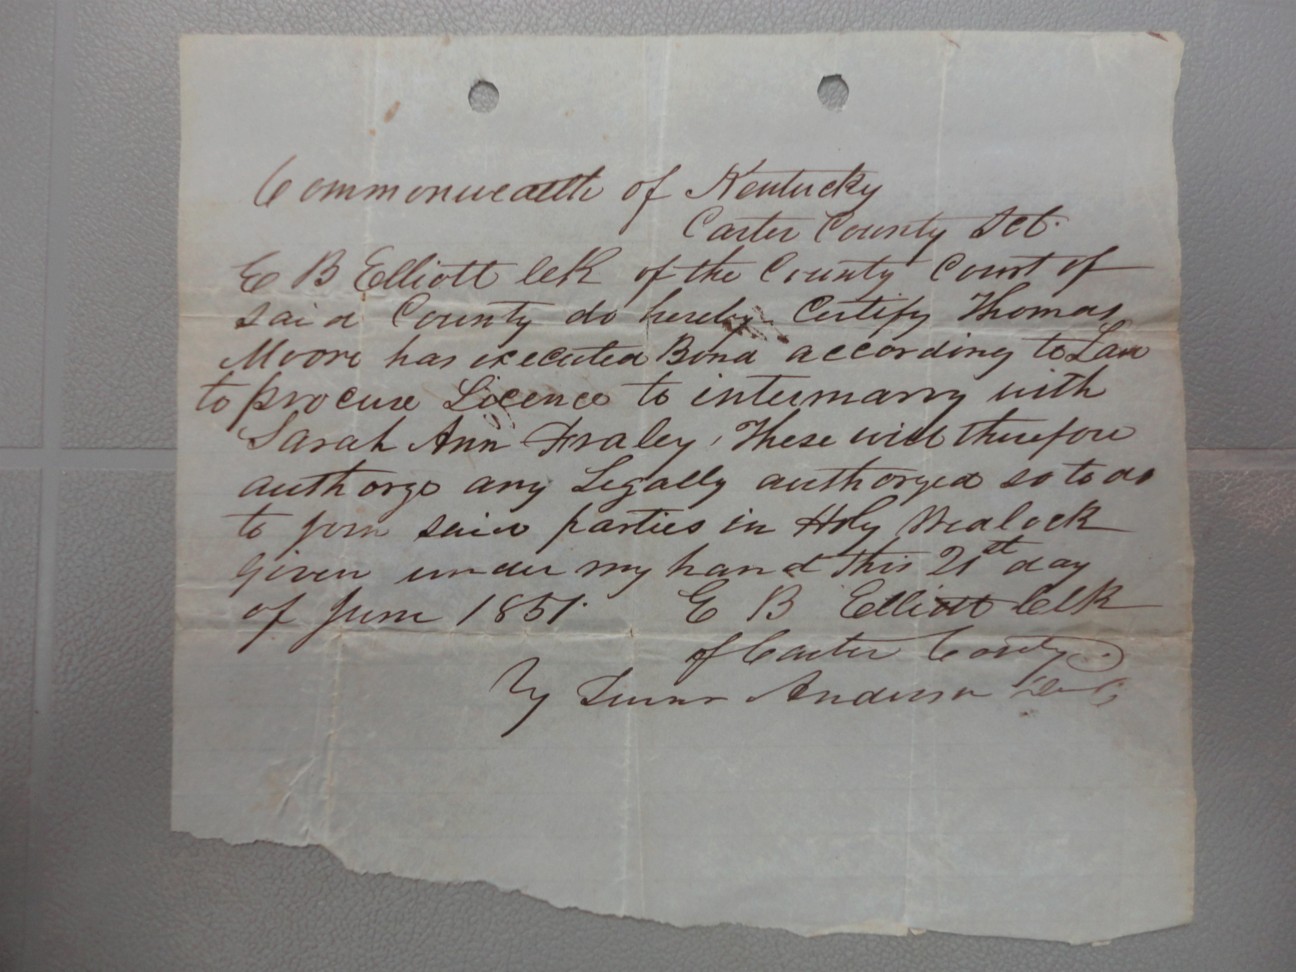 Commonwealth of Kentucky
Carter County Sct.
E B Elliott Clk of the County Court of
said County do hereby Certify Thomas
Moore has executed Bond according to Law
to procure Licence to intermarry with
Sarah Ann Fraley, These will therefore
authorze any Legally authorzed so to do
to join said parties in Holy Wedlock
Given under my hand this 21st day
of June 1851. E B Elliott Clk
of Carter County
By Anderson